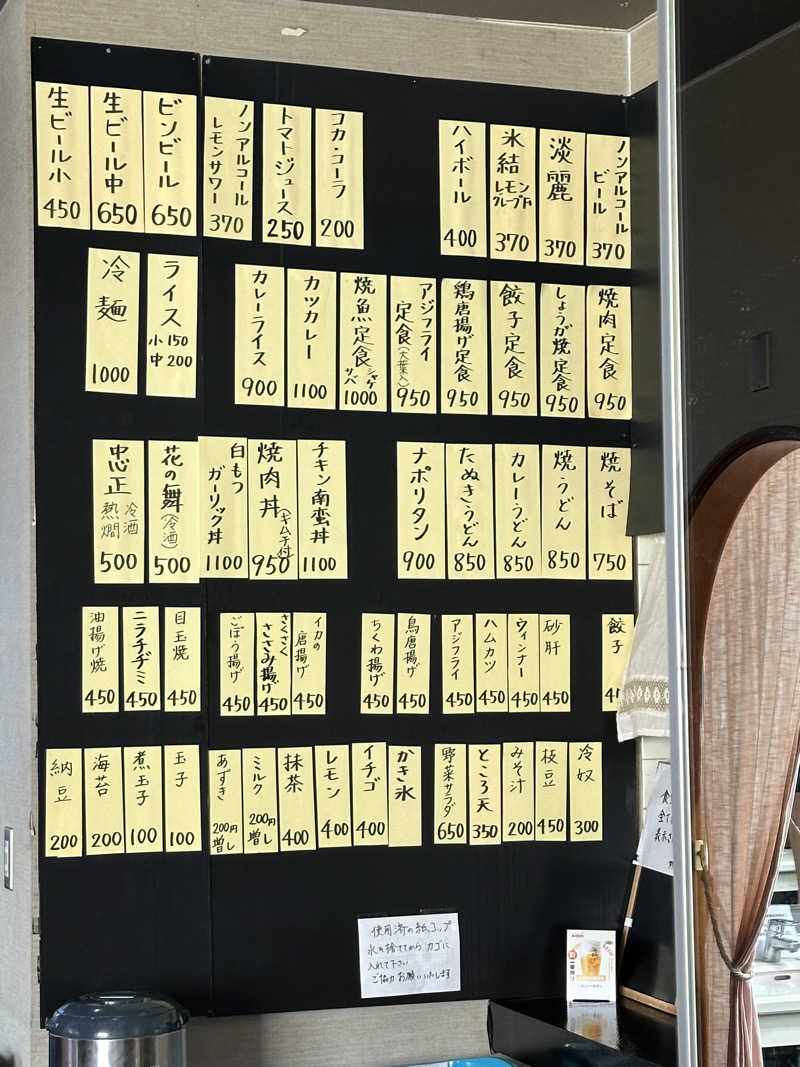 ノンアルコール
ビール
370
淡麗
370
氷結
レモン
370
ハイボール
400
コカ・コーラ
200
トマトジュース
250
ノンアルコール
レモンサワー
370
ビンビール
650
生ビール中
650
生ビール小
450
焼肉定食
950
しょうが焼定食
950
餃子定食
950
鶏唐揚げ定食
950
アジフライ
定食(大葉入)
950
焼魚定食
シャケ
サバ
1000
カツカレー
1100
カレーライス
900
ライス
小150
中200
冷麺
1000
焼そば
750
焼うどん
850
カレーうどん
850
たぬきうどん
850
ナポリタン
900
チキン南蛮丼
1100
焼肉丼
(キムチ付)
950
白もつ
ガーリック丼
1100
花の舞
(冷酒)
500
忠正
冷酒
熱燗
500
餃子
砂肝
450
ウィンナー
450
ハムカツ
450
アジフライ
450
鳥唐揚げ
450
ちくわ揚げ
450
イカの
唐揚げ
450
さくさく
ささみ揚げ
450
ごぼう揚げ
450
目玉焼
450
ニラチヂミ
450
油揚げ焼
450
冷奴
300
枝豆
450
みそ汁
200
ところ天
350
野菜サラダ
650
かき氷
イチゴ
400
レモン
400
抹茶
400
ミルク
200円
増し
あずき
200円
増し
玉子
100
煮玉子
100
海苔
200
納豆
200
使用済の紙コップ
氷を捨ててから、カゴに
入れて下さい
ご協力お願いいたします